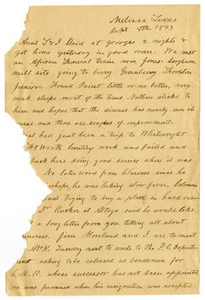 Melissa Texas
8th 1893
Aunt T & I staid at georges 2 nights &
got home yesterday in good order. We met
an African Funeral train near Jones
mill acts going to bury Greenberry Thornton
junior. Frank Foster little or no better, very
weak sleeps most of the time. Nothing sticks to
him and hopes that the disease has nearly run its
course and there are simptoms of improvement.
had just been a trip to Whitwright
Ft Worth hunting work and failed and
back here doing good service when it was
No late word from Clarence since he
perhaps, he was taking slow fever. Solomon
and trying to buy a place, in hard
Dr. Rucker at Altoga said he would like
a long letter from you telling all about
Jim Worland and I are to meet
McK. Tuesday next to write to the P.O. Department
asking to be released as bondsmen for
G.M.R. whose successor has not been appointed
as was promised when his resignation was accepted